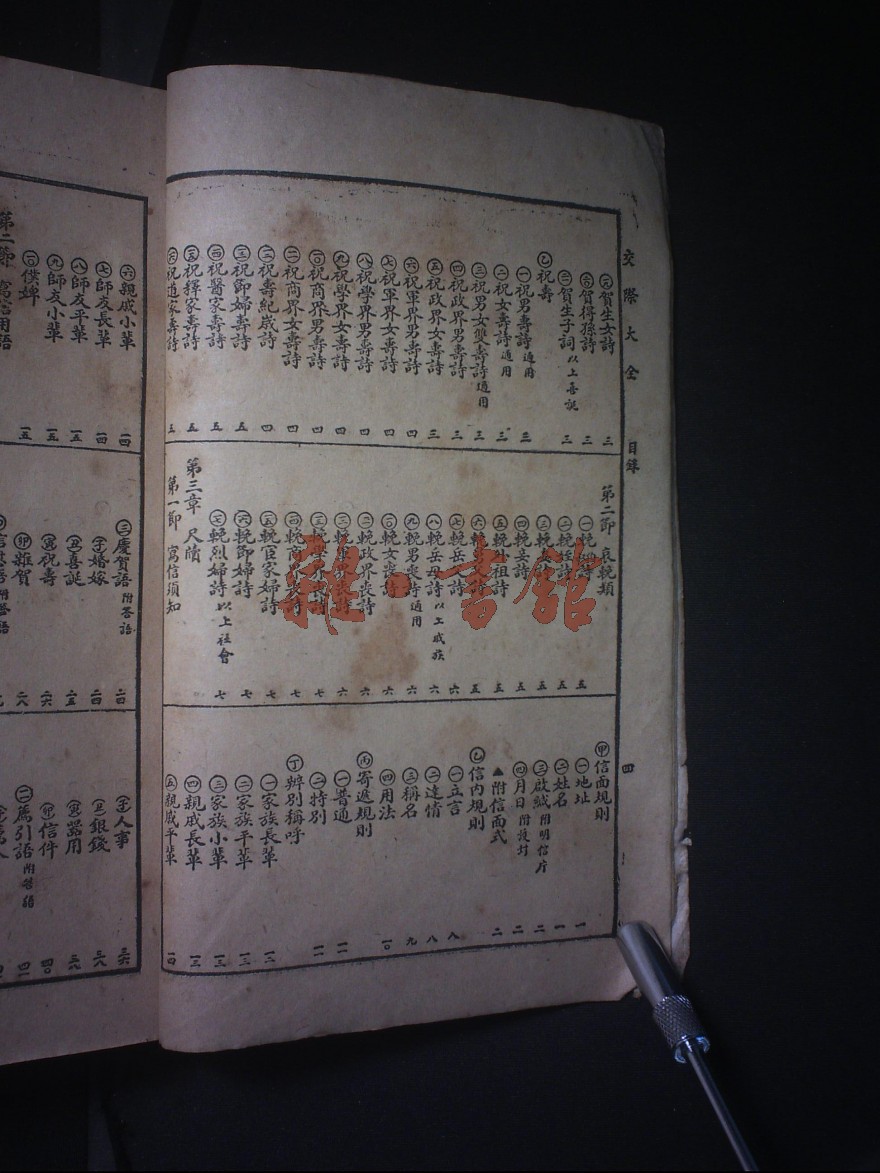 交際大全 目錄
四
㊀賀生女詩 三
㊀賀得孫詩 三
㊁賀生子詞 以上喜誕 三
㊁乙祝壽
㊀祝男壽詩 通用 三
㊁祝女壽詩 通用 三
㊂祝男女雙壽詩 通用 三
㊃祝政界男壽詩 三
㊄祝政界女壽詩 三
㊅祝軍界男壽詩 四
㊆祝軍界女壽詩 四
㊇祝學界男壽詩 四
㊈祝學界女壽詩 四
祝商界男壽詩 四
祝商界女壽詩 四
祝壽紀歲詩 四
祝節婦壽詩 五
祝醫家壽詩 五
祝釋家壽詩 五
祝道家壽詩 五
第二節 哀輓類
㊀輓 詩 五
㊁輓姪詩 五
㊂輓 詩 五
㊃輓妾詩 五
㊄輓外祖詩 五
㊅輓 詩 五
㊆輓岳 詩 六
㊇輓岳母詩 以上戚族 六
㊈輓男喪詩 通用 六
輓女喪詩 六
輓政界喪詩 六
輓軍界喪詩 六
輓學界喪詩 七
輓商界喪詩 七
輓宦家婦詩 七
輓節婦詩 七
輓烈婦詩 以上社會 七
第三章 尺牘
第一節 寫信須知
甲信面規則
㊀地址 一
㊁姓名 一
㊂啟緘 附明信片 二
㊃月日 附護封 二
▲附信面式 二
乙信內規則
㊀立言 八
㊁達情 八
㊂稱名 九
㊃用法 一〇
丙寄遞規則
㊀普通 一一
㊁特別 一一
丁辨別稱呼
㊀家族長輩 一二
㊁家族平輩 一三
㊂家族小輩 一三
㊃親戚長輩 一三
㊄親戚平輩 一四
㊅親戚小輩 一四
㊆師友長輩 一四
㊇師友平輩 一五
㊈師友小輩 一五
僕婢 一五
第二節 寫信用語
㊂慶賀語 附答語 二四
子婚嫁 二四
丑喜誕 二五
寅祝壽 二六
卯雜賀 二八
子人事 三六
丑銀錢 三八
寅器用 三九
卯信件 四〇
薦引語 附答語 四一
雅·書館